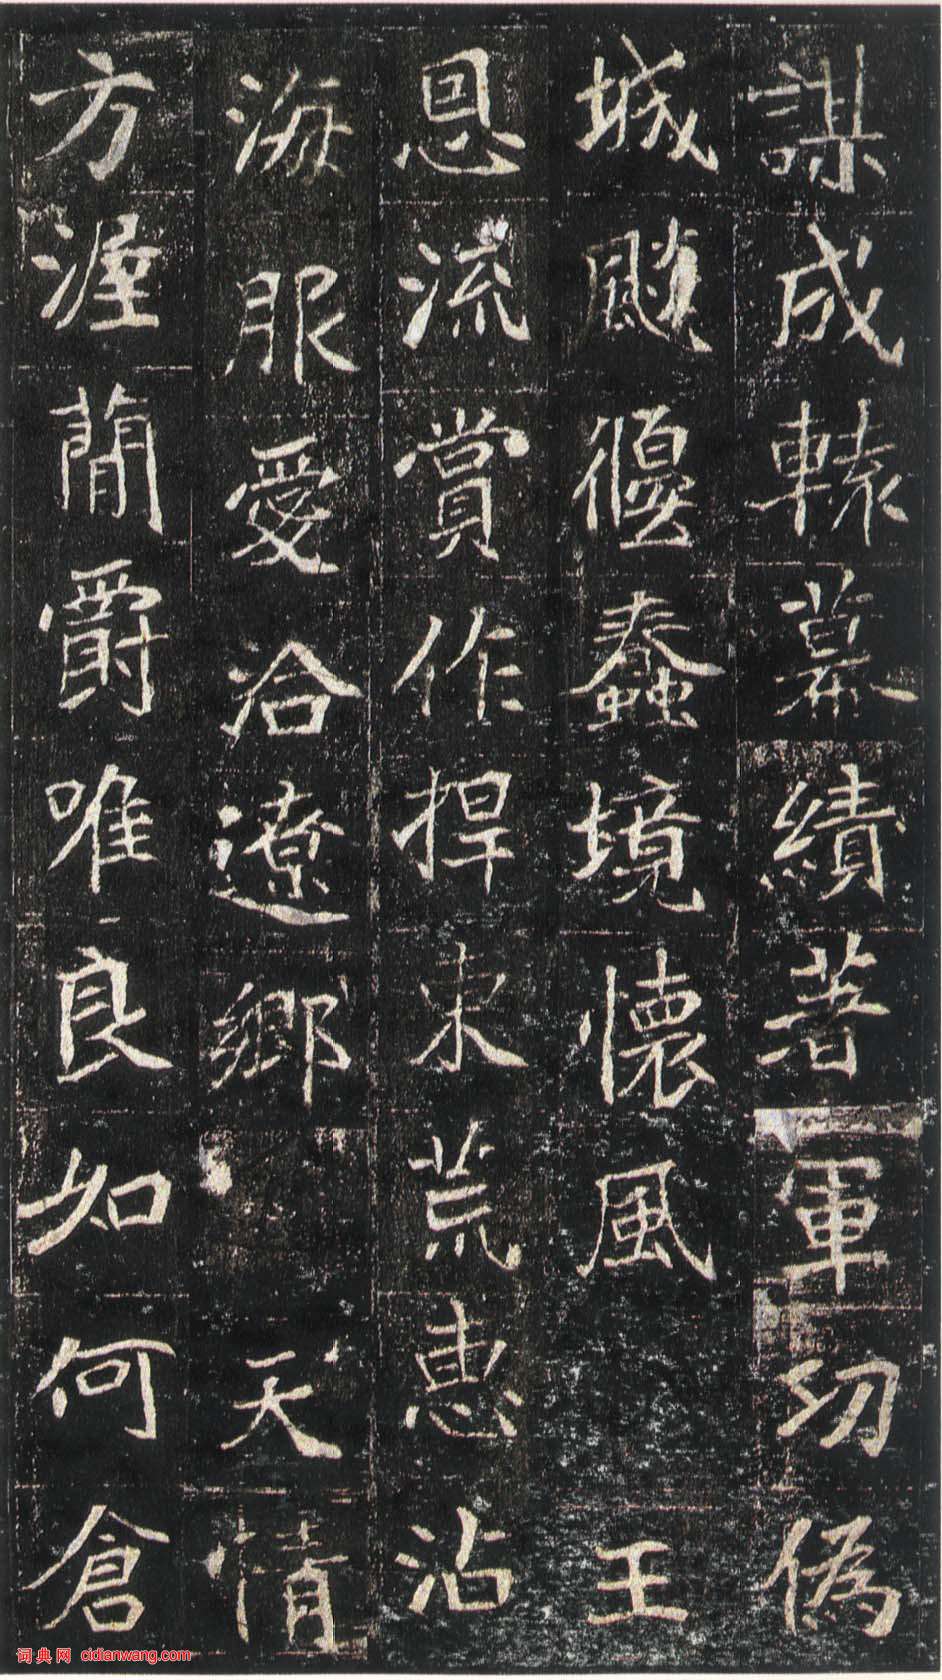 謀成轅幕績著軍功偽
城颷偃蠢境懷風王
恩流賞作捍東荒惠沾
海服愛洽遼鄉天情
方渥簡爵唯良如何倉
词典网 cidianwang.com